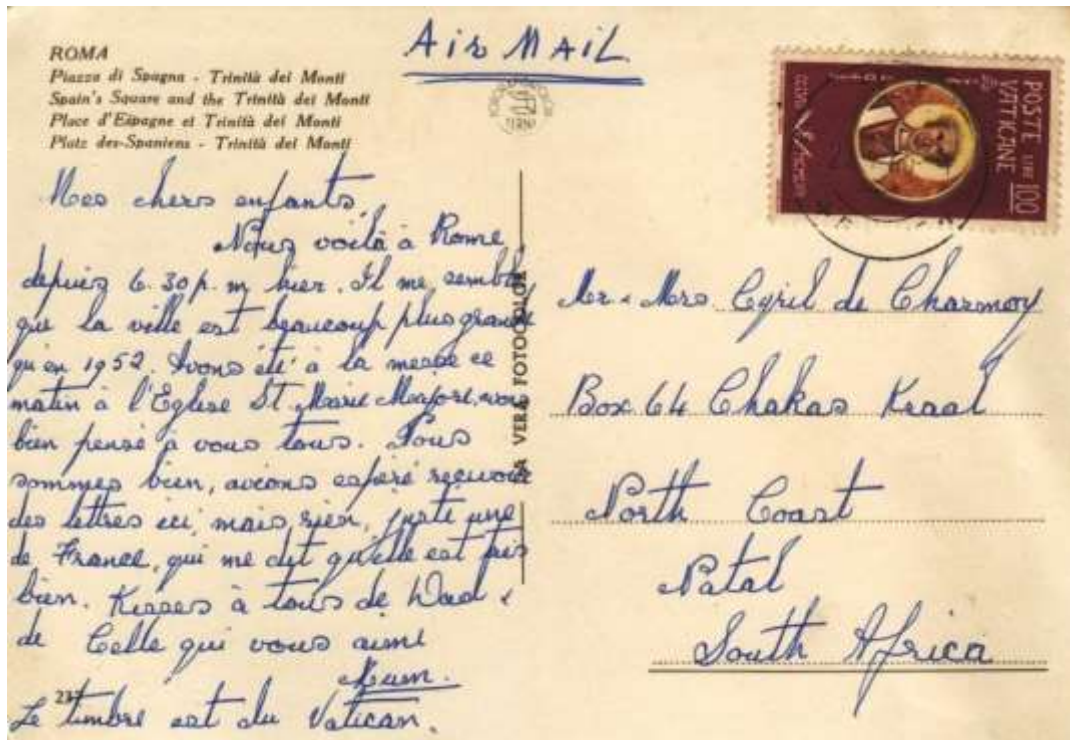 ROMA
Piazza di Spagna - Trinità dei Monti
Spain's Square and the Trinità dei Monti
Place d'Espagne et Trinità dei Monti
Platz des-Spaniens - Trinità dei Monti
Air MAIL
POSTE VATICANE
LIRE 100
LA VERA FOTOCOLOR
Mes chers enfants,
Nous voilà à Rome,
depuis 6.30 p.m hier. Il me semble
que la ville est beaucoup plus grande
qu'en 1952. Avons été à la messe ce
matin à l'Eglise St. Marie Majore, avons
bien pensé à vous tous. Nous
sommes bien, avions espéré recevoir
des lettres ici, mais rien, juste une
de France, qui me dit qu'elle est très
bien. Kisses à tous de Dad &
de Celle qui vous aime
Mum.
237
Le timbre est du Vatican.
Mr & Mrs Cyril de Charmoy
Box 64 Chakas Kraal
North Coast
Natal
South Africa